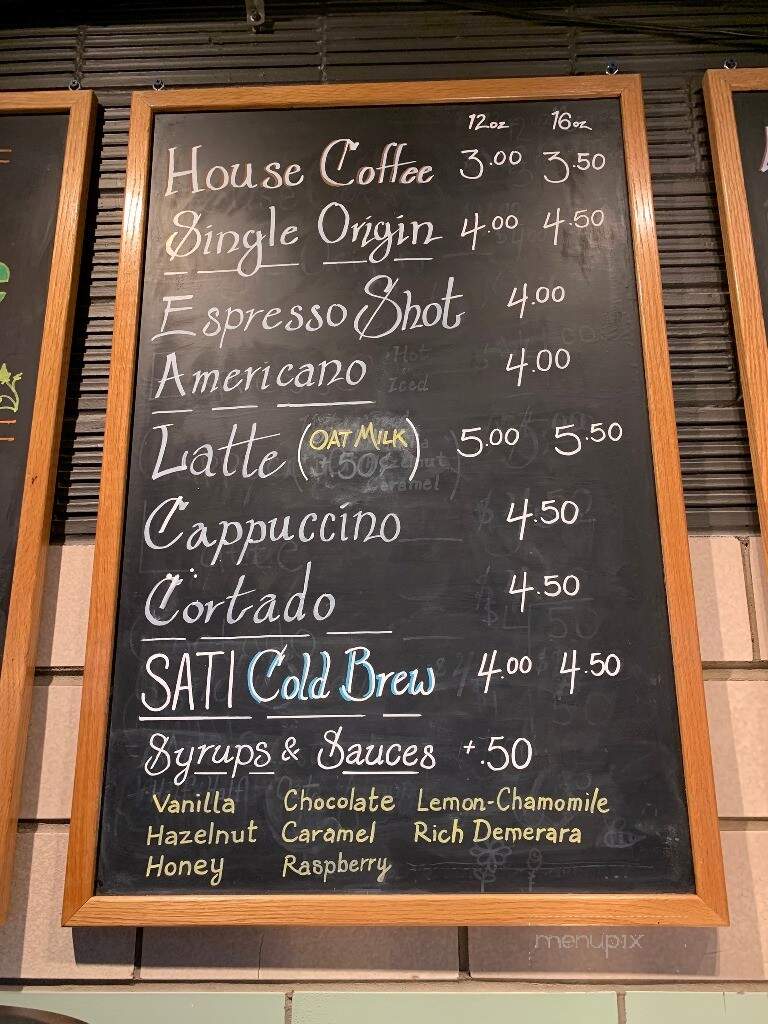 12oz 16oz
House Coffee 3.00 3.50
Single Origin 4.00 4.50
Espresso Shot 4.00
Americano 4.00
Hot
Iced
Latte (OAT MILK) 5.00 5.50
Caramel
Cappuccino 4.50
Cortado 4.50
SATI Cold Brew 4.00 4.50
Syrups & Sauces +.50
Vanilla Chocolate Lemon-Chamomile
Hazelnut Caramel Rich Demerara
Honey Raspberry
menupix